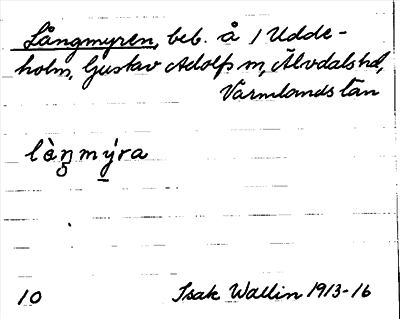 Långmyren, beb. å 1 Udde-
holm, Gustav Adolfs sn, Älvdals hd,
Värmlands län
làŋ̥mýra
10 Isak Wallin 1913-16